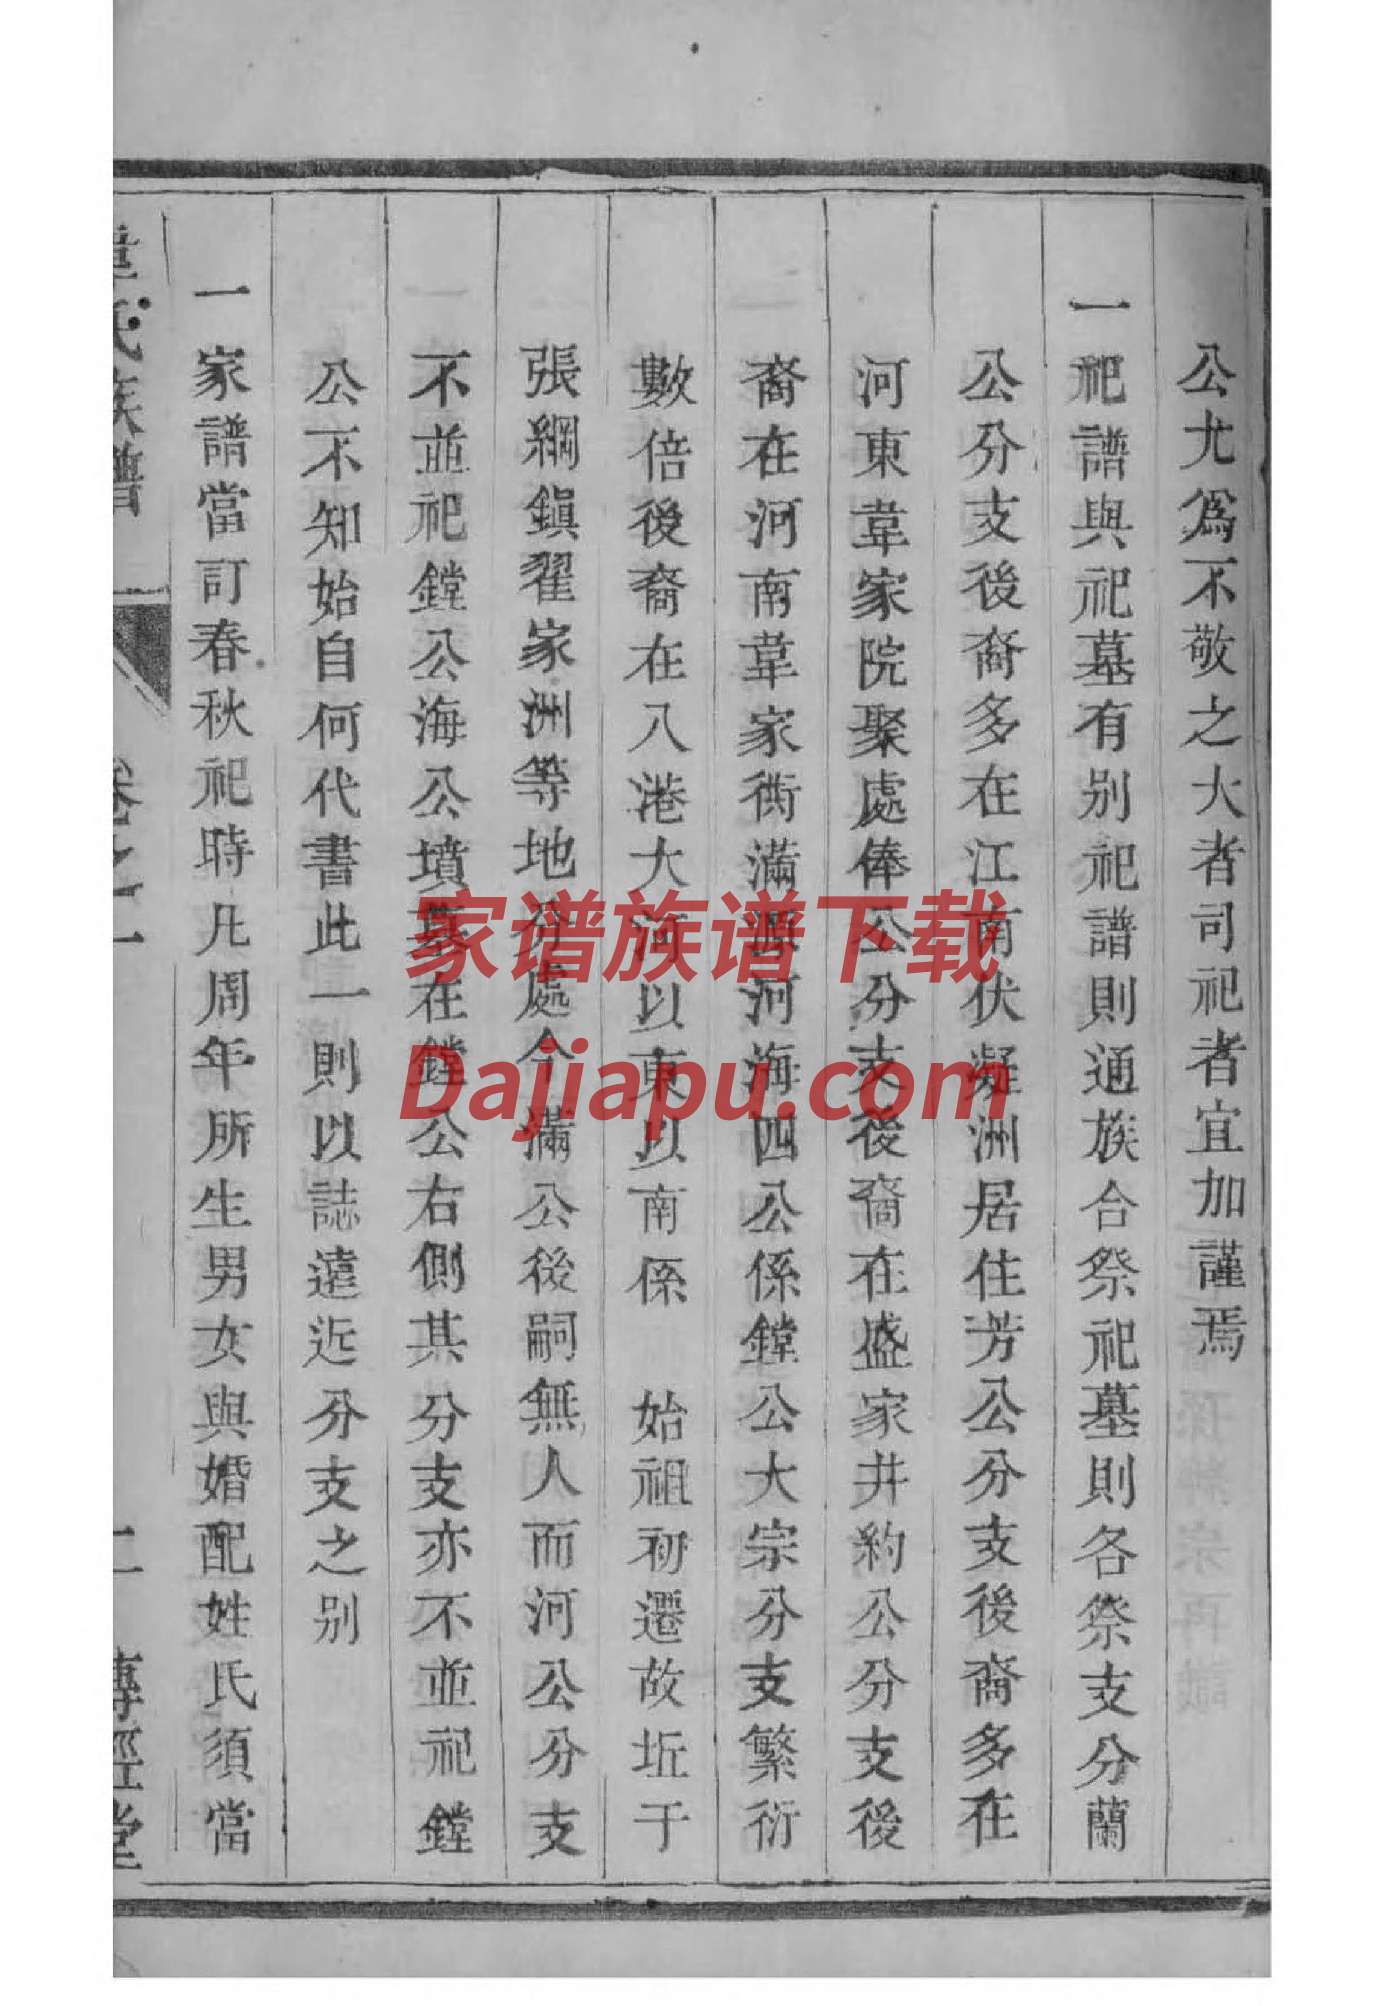 公尤為不敬之大者司祀者宜加謹焉
一祀譜與祀墓有别祀譜則通族合祭祀墓則各祭支分蘭
公分支後裔多在江南伏凝洲居住芳公分支後裔多在
河東韋家院聚處俸公分支後裔在盛家井約公分支後
裔在河南韋家衖滿源河海四公係鏜公大宗分支繁衍
數倍後裔在八港大河以東以南係　始祖初遷故坵于
張綱鎮翟家洲等地分處今滿公後嗣無人而河公分支
不並祀鏜公海公墳墓在鏜公右側其分支亦不並祀鏜
公不知始自何代書此一則以誌遠近分支之别
一家譜當訂春秋祀時凡周年所生男女與婚配姓氏須當
氏族譜
卷之一
二
傳經堂
家谱族谱下载
Dajiapu.com